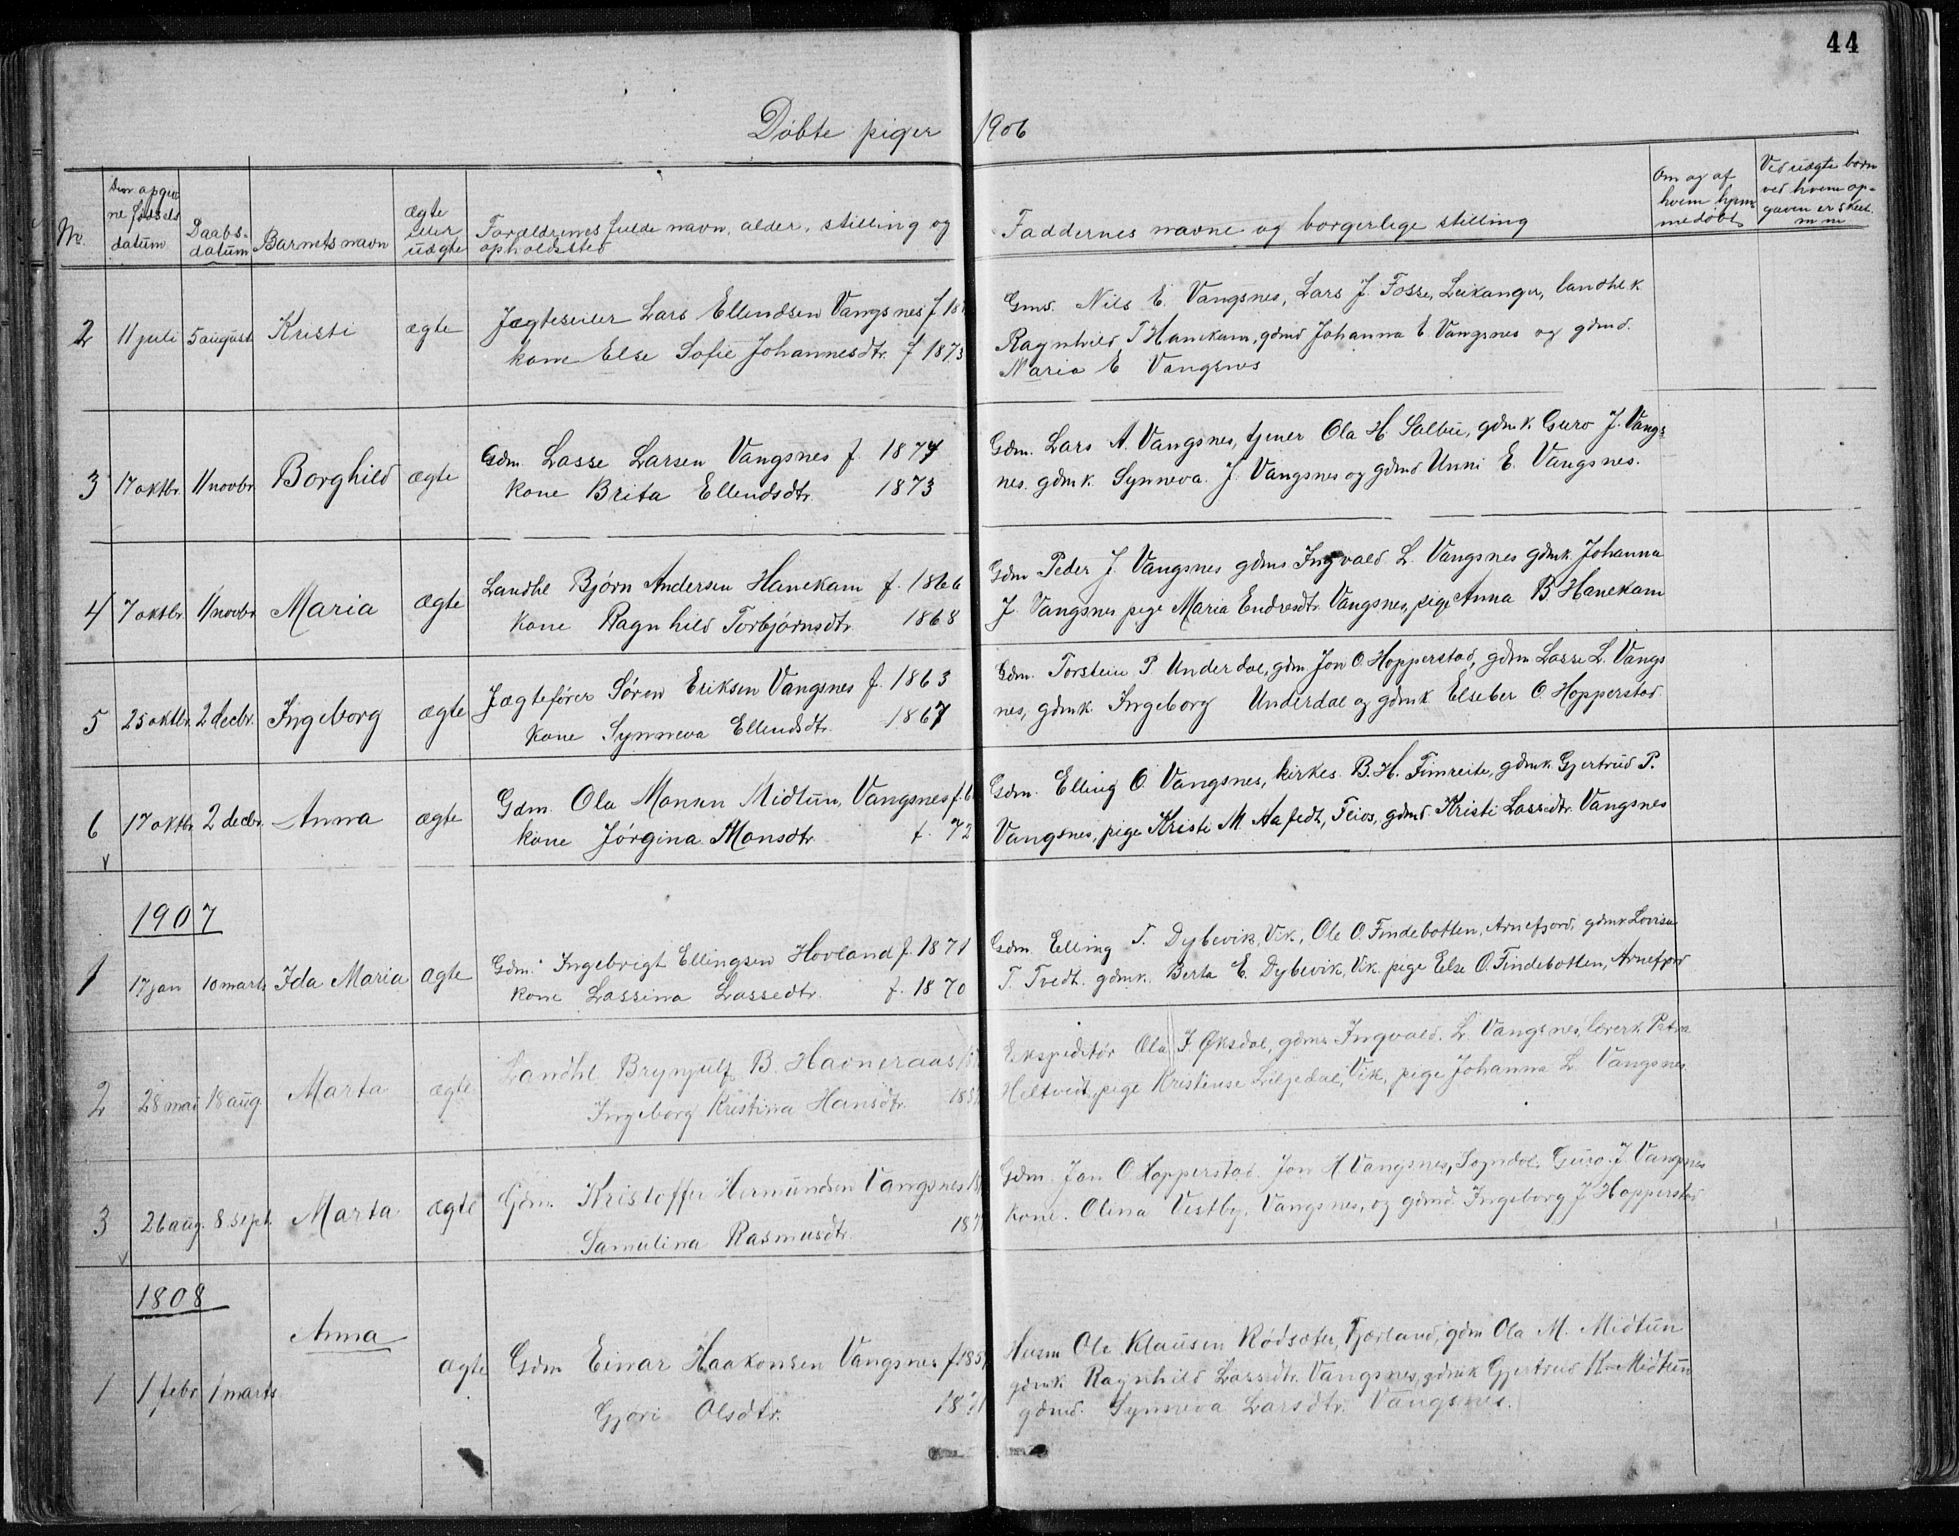 44
Døbte piger 1906
No. Den opgivne fødselsdatum Daabsdatum Barnets navn ægte eller uægte Forældrenes fulde navn, alder, stilling og opholdssted Faddernes navne og borgerlige stilling Om og af hvem hjemmedøbt Ved uægte børn ved hvem opgaven er skeet m m
2 11 juli 5 august Kristi ægte Jægteseiler Lars Ellendsen Vangsnes f
kone Else Sofie Johannesdtr. f 1873
Gmd. Nils E. Vangsnes, Lars J. Fosse, Leikanger, landhl k.
Ragnhild T Hanekam, gdmd Johanna E Vangsnes og gdmd.
Maria E Vangsnes
3 17 oktbr. 11 novbr. Borghild ægte Gdm. Lasse Larsen Vangsnes f. 1874
kone Brita Ellendsdtr. 1873
Gdm. Lars A. Vangsnes, tjener Ola H. Salbu, gdmk. Guro J. Vangs
nes. gdmk. Synneva J. Vangsnes og gdmd Unni E. Vangsnes.
4 7 oktbr. 11 novbr. Maria ægte Landhl Bjørn Andersen Hanekam f. 1866
kone Ragnhild Torbjørnsdtr. 1868
Gdm Peder J. Vangsnes gdms Ingvald L. Vangsnes gdmk. Johanna
J. Vangsnes pige Maria Endresdtr. Vangsnes, pige Anna B. Hanekam
5 25 oktbr. 2 decbr. Ingeborg ægte Jægtefører Søren Eriksen Vangsnes f. 1863
kone Synneva Ellendsdtr. 1867
Gdm. Torstein P Underdal, gdm. Jon O. Hopperstad, gdm Lasse L. Vangs
nes, gdmk. Ingeborg Underdal og gdmk Elseber O Hopperstad
6 17 oktbr. 2 decbr. Anna ægte Gdm. Ola Monsen Midtun, Vangsnes f.
kone Jørgina Monsdtr. f. 72
Gdm. Elling O. Vangsnes, kirkes. B. H. Fimreite, gdmk. Gjertrud P.
Vangsnes, pige Kristi M. Aafedt, Feios, gdmd. Kristi Lassedtr. Vangsnes
1907
1 17 jan 10 marts Ida Maria ægte Gdm. Ingebrigt Ellingsen Hovland f. 1871
kone Lassina Lassedtr. f. 1870
Gdm. Elling T. Dybevik, Vik, Ole O. Findebotten, Arnefjord, gdmk Lovisa
T. Tvedt. gdmk. Berta E. Dybevik, Vik. pige Else O. Findebotten, Arnefjord
2 28 mai 18 aug Marta ægte Landhl Brynjulf B. Havneraas
Ingeborg Kristina Hansdtr.
Ekspeditør Ola J Øksdal, gdms Ingvald L Vangsnes, lærerk Petra
Heltvedt, pige Kristense Liljedal, Vik, pige Johanna L. Vangsnes
3 26 aug. 8 sept. Marta ægte Gdm. Kristoffer Hermundsen Vangsnes
Samulina Rasmusdtr.
Gdm. Jon O Hopperstad. Jon H Vangsnes, Sogndal. Guro J Vangsnes
kone. Olina Vestby, Vangsnes, og gdmd. Ingeborg J Hopperstad
1808
1 1 febr 1 marts Anna ægte Gdm Einar Haakonsen Vangsnes
Gjøri Olsdtr.
Husm Ole Klausen Rødsæter, Fjærland, gdm Ola M. Midtun
gdmk Ragnhild Lassedtr. Vangsnes, gdmk Gjertrud K Midtun
gdmd. Synneva Larsdtr. Vangsnes.